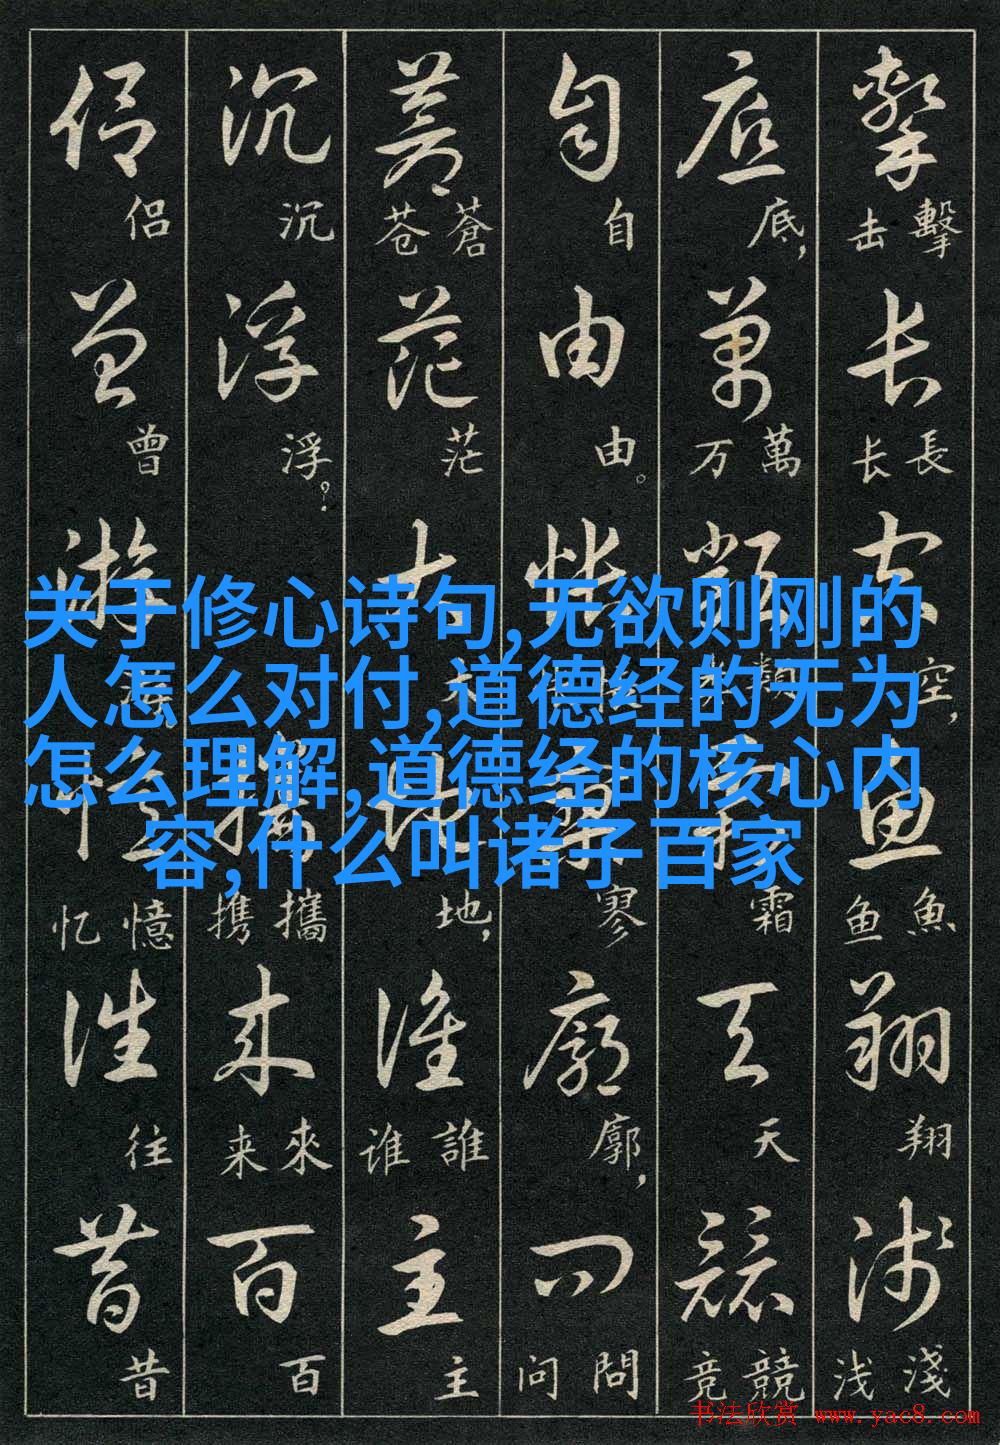 关于修心诗句,无欲则刚的
人怎么对付,道德经的无为
怎么理解,道德经的核心内
容,什么叫诸子百家
擊 擊击 长 長长 空 空, 鱼 魚鱼 翔 翔 淺 淺浅
底 底, 萬 萬万 類 類 霜 霜 天 天 競 競竞
自 自 由 由。 悵 寥 寥 廓 廓, 问 問问
蒼 蒼苍 茫 茫 大 大 地 地, 谁 誰谁 主 主
沉 沉 浮 浮? 攜 攜携 来 來来 百 百
侣 侣 曾 曾 游 憶 憶忆 往 往 昔 昔
书法欣赏 www.yac8.com